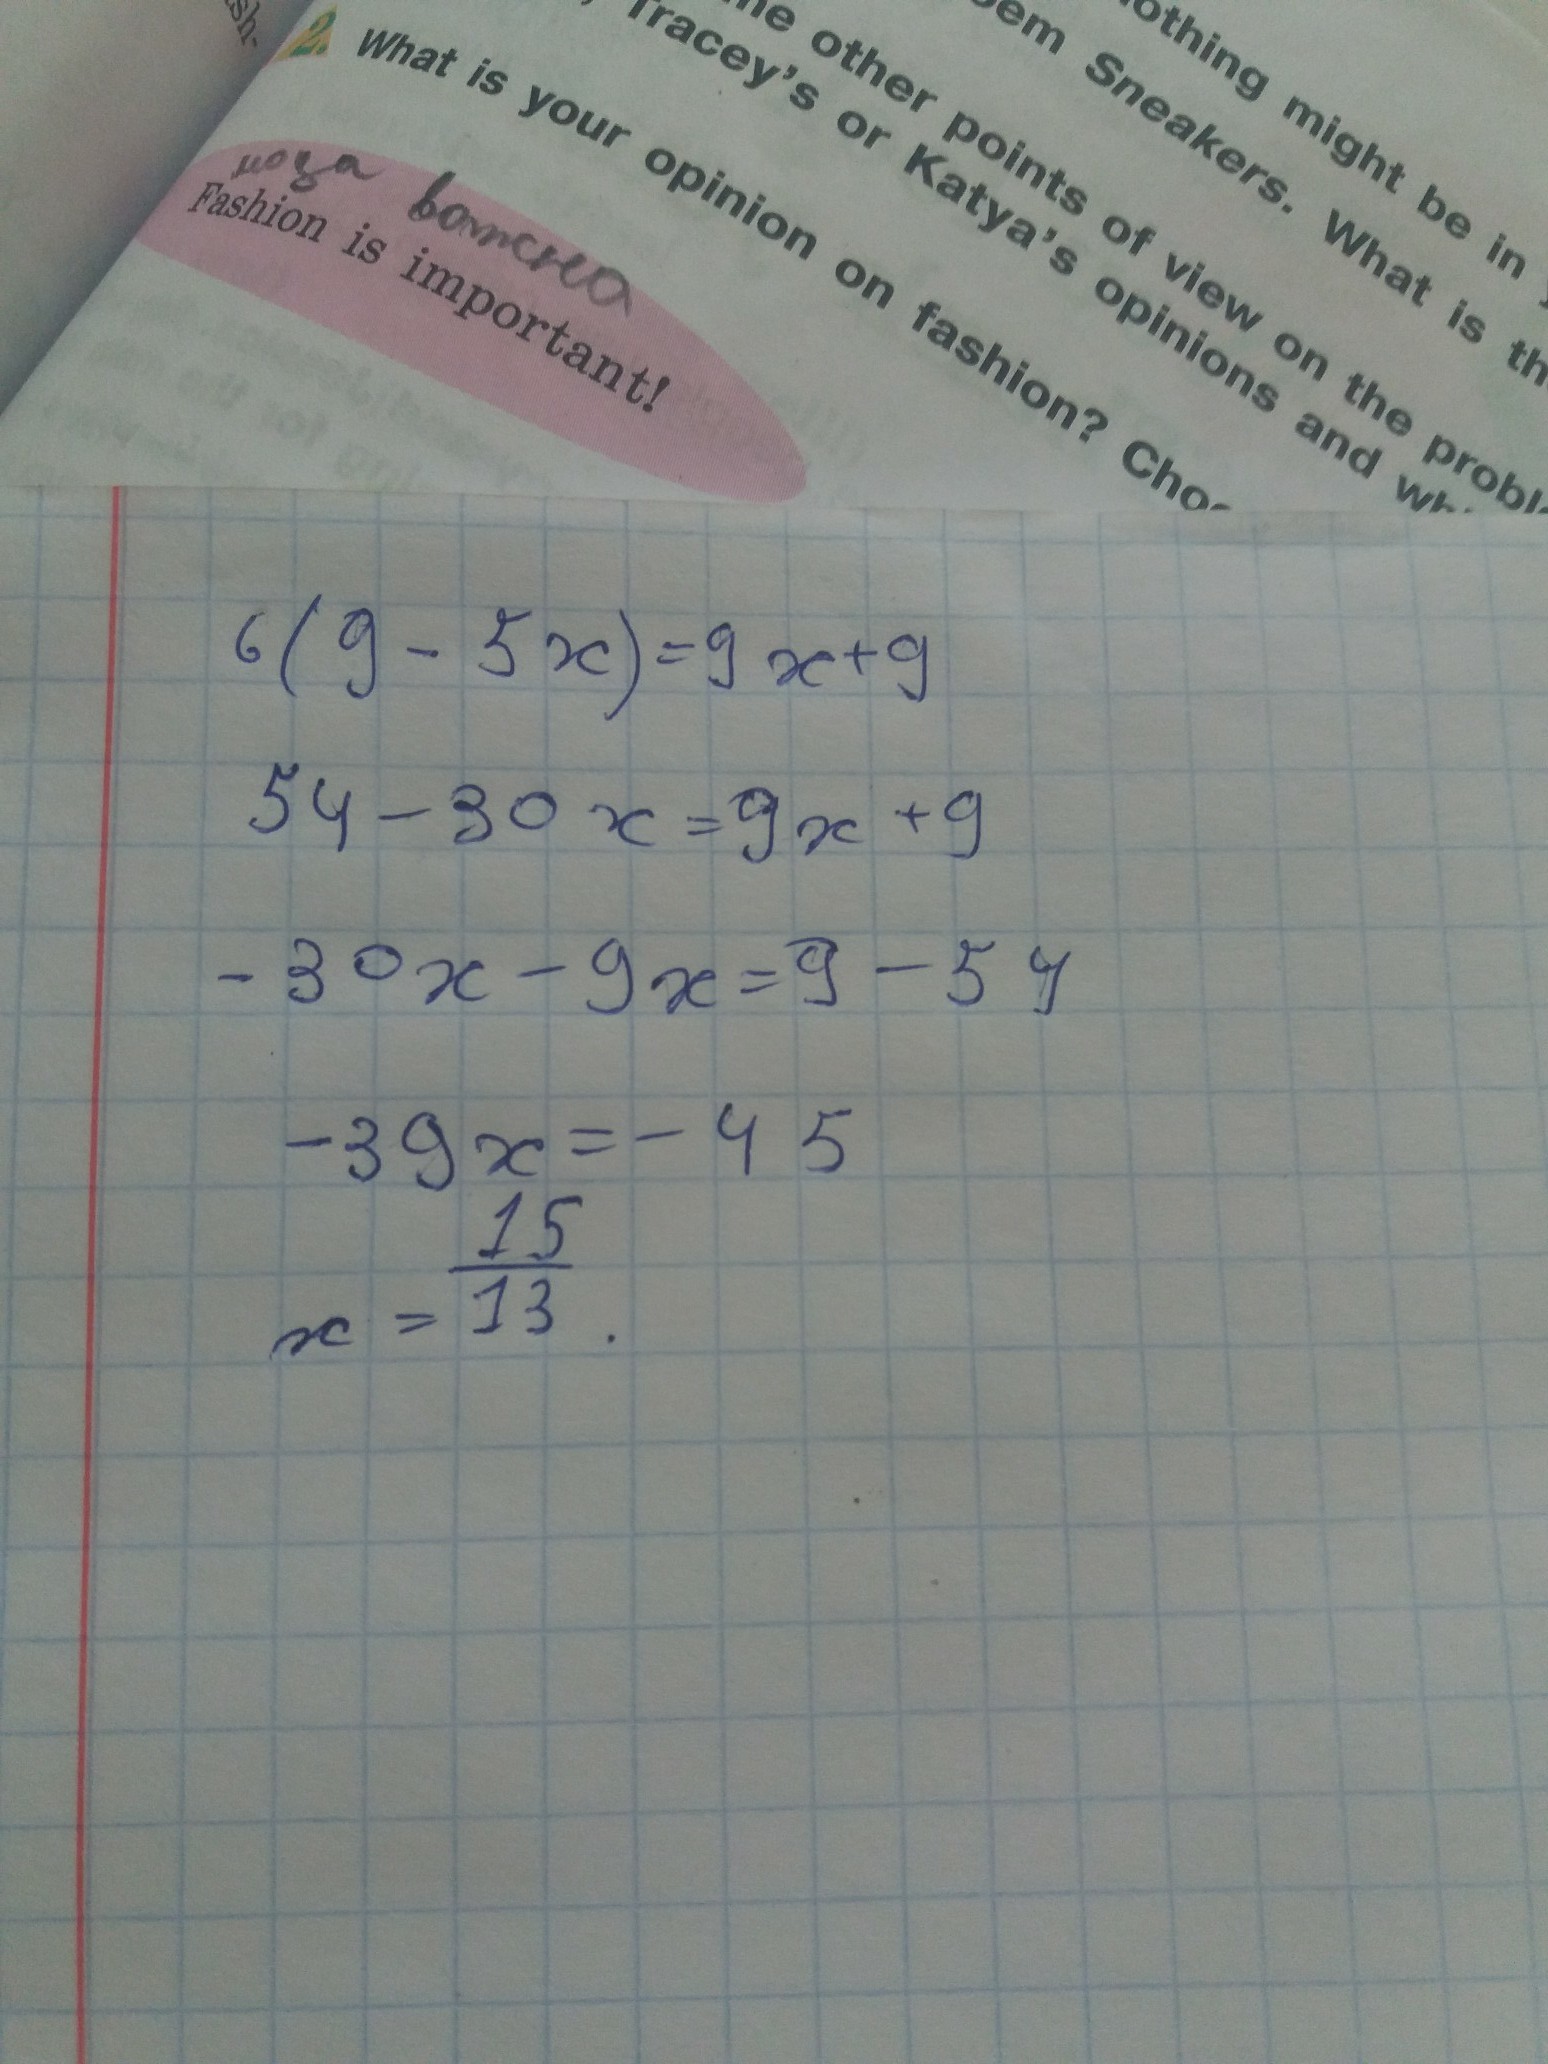 sh-
othing might be in
oem Sneakers. What is th
me other points of view on the probl
Tracey's or Katya's opinions and wh
2. What is your opinion on fashion? Choo
мода важна
Fashion is important!
6(9-5x)=9x+9
54-30x=9x+9
-30x-9x=9-54
-39x=-45
x=15/13.